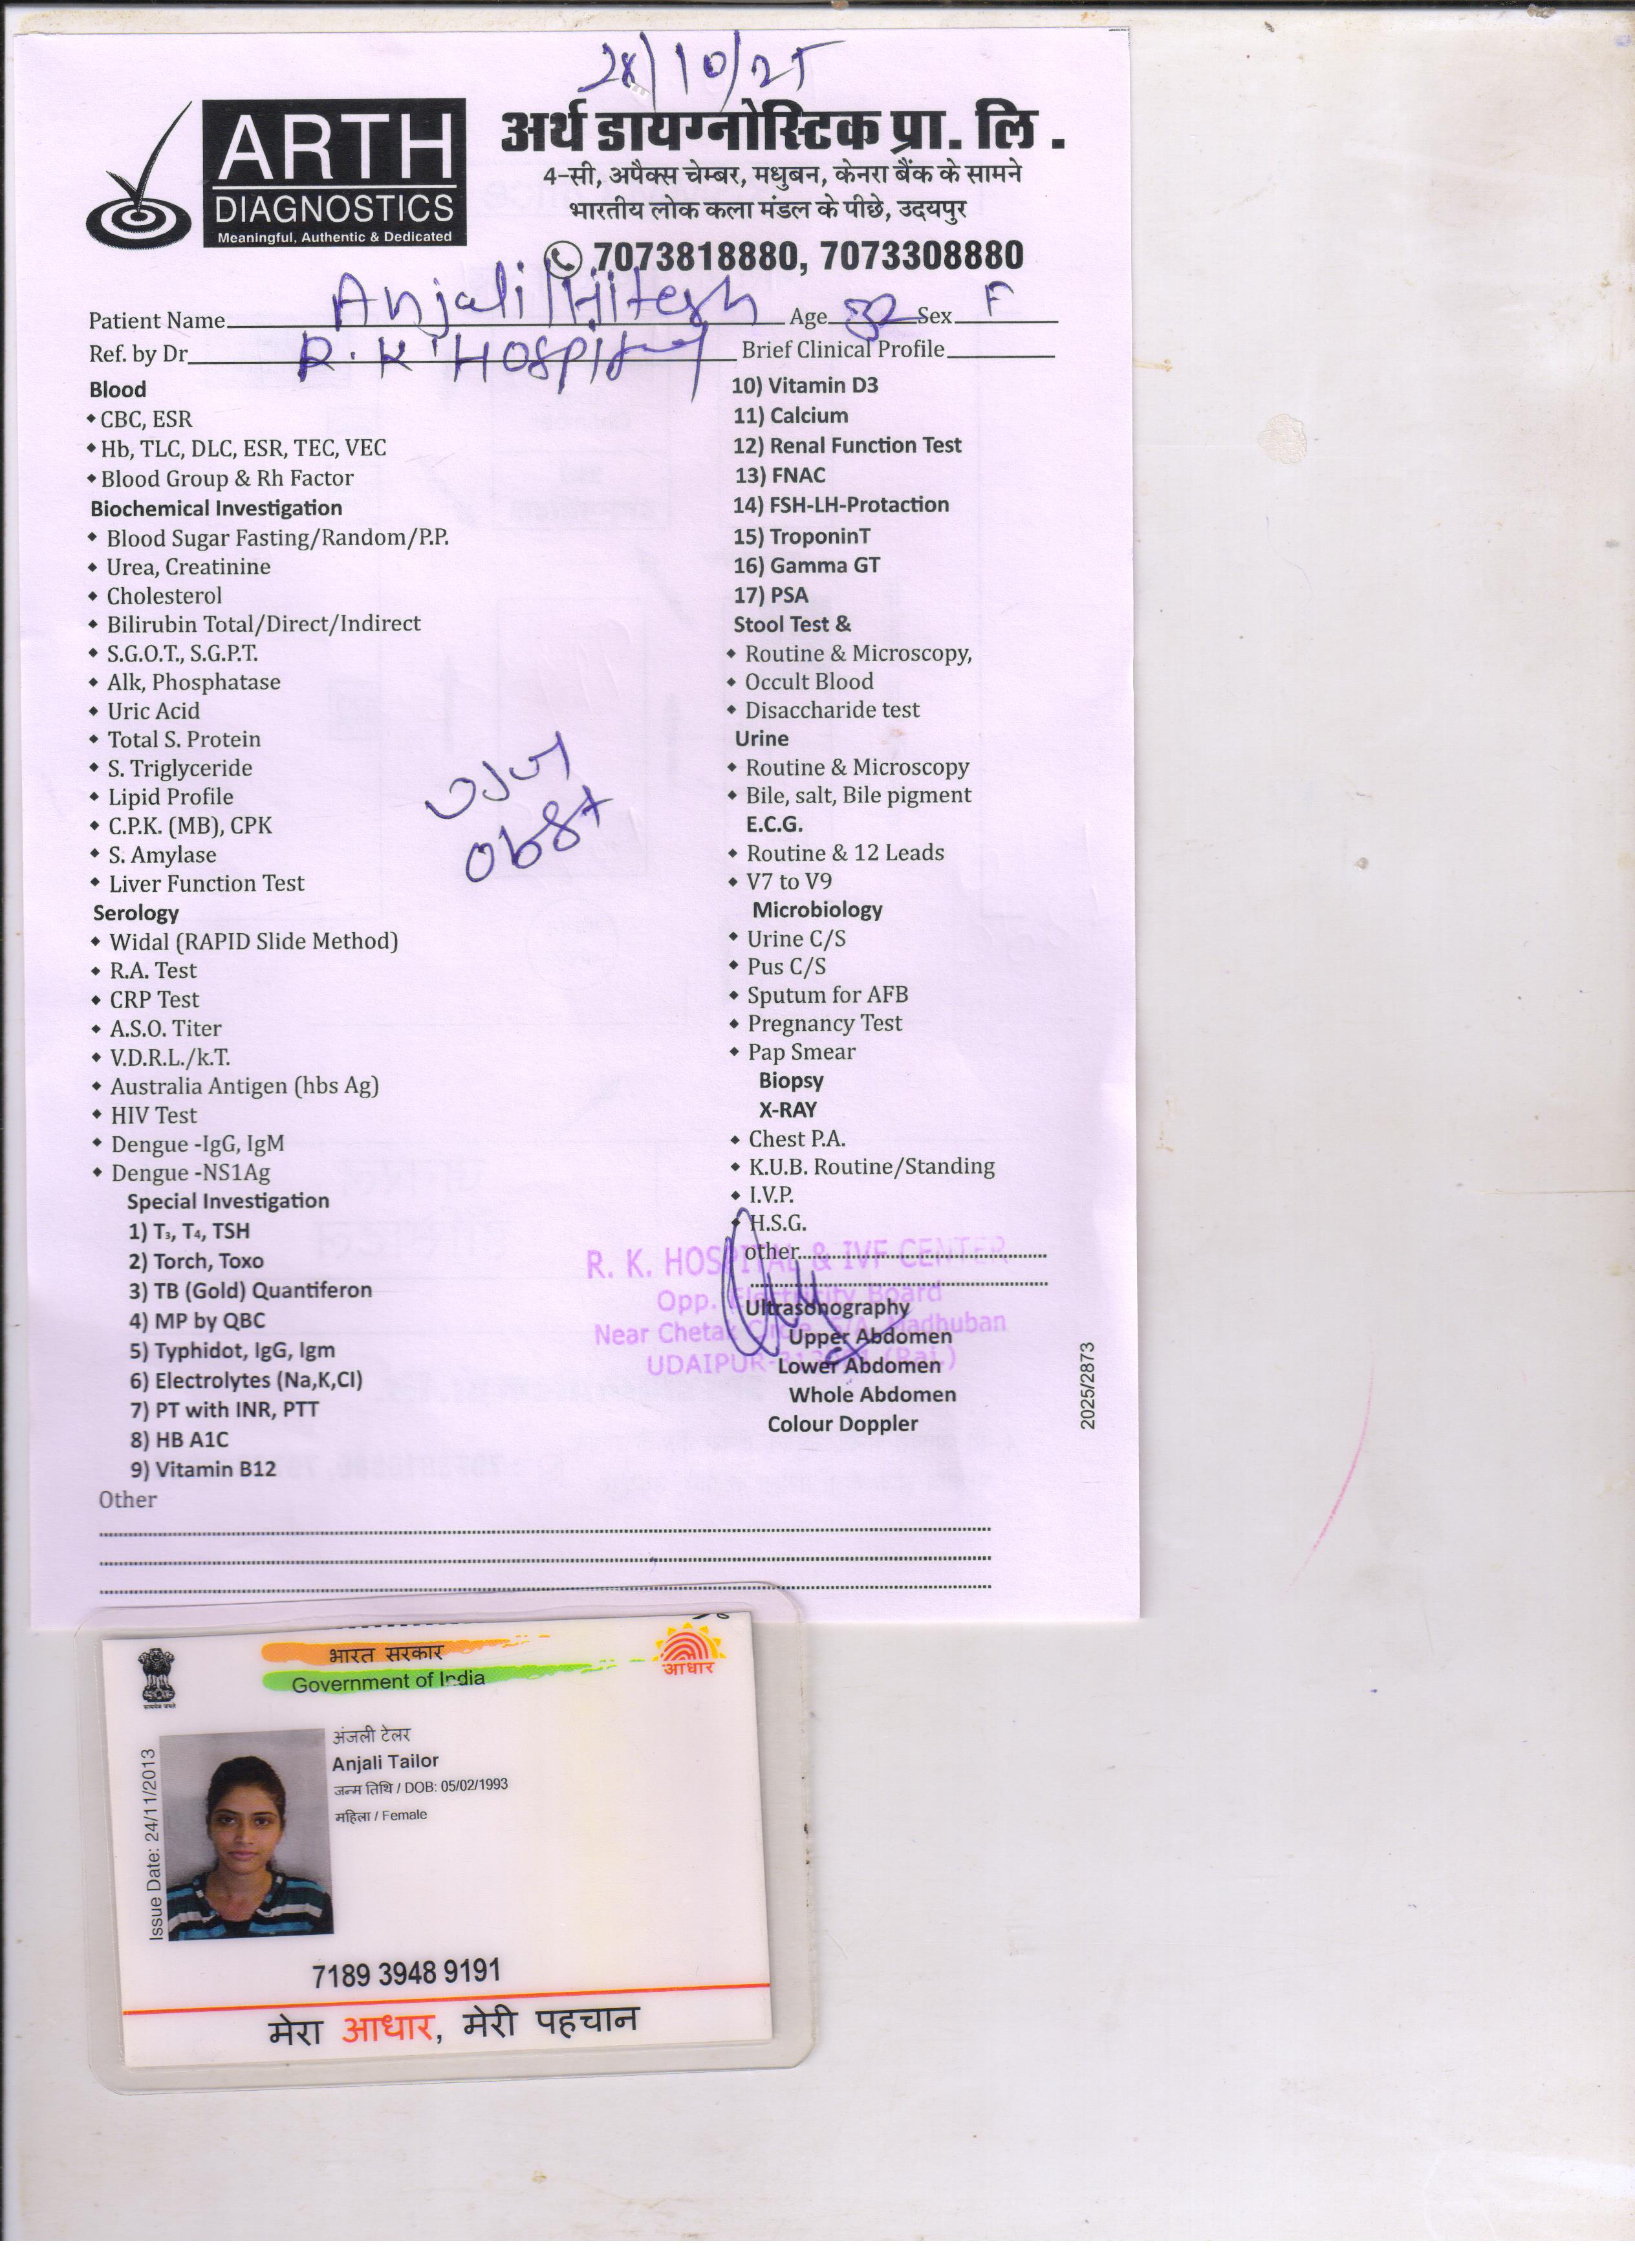 28/10/25
ARTH
DIAGNOSTICS
Meaningful, Authentic & Dedicated
अर्थ डायग्नोस्टिक प्रा. लि .
4-सी, अपैक्स चेम्बर, मधुबन, केनरा बैंक के सामने
भारतीय लोक कला मंडल के पीछे, उदयपुर
7073818880, 7073308880
Patient Name Anjali/Hitesh Age 32 Sex F
Ref. by Dr R.K Hospital Brief Clinical Profile
Blood
CBC, ESR
Hb, TLC, DLC, ESR, TEC, VEC
Blood Group & Rh Factor
Biochemical Investigation
Blood Sugar Fasting/Random/P.P.
Urea, Creatinine
Cholesterol
Bilirubin Total/Direct/Indirect
S.G.O.T., S.G.P.T.
Alk, Phosphatase
Uric Acid
Total S. Protein
S. Triglyceride
Lipid Profile
C.P.K. (MB), CPK
S. Amylase
Liver Function Test
Serology
Widal (RAPID Slide Method)
R.A. Test
CRP Test
A.S.O. Titer
V.D.R.L./k.T.
Australia Antigen (hbs Ag)
HIV Test
Dengue -IgG, IgM
Dengue -NS1Ag
Special Investigation
1) T₃, T₄, TSH
2) Torch, Toxo
3) TB (Gold) Quantiferon
4) MP by QBC
5) Typhidot, IgG, Igm
6) Electrolytes (Na,K,Cl)
7) PT with INR, PTT
8) HB A1C
9) Vitamin B12
10) Vitamin D3
11) Calcium
12) Renal Function Test
13) FNAC
14) FSH-LH-Protaction
15) TroponinT
16) Gamma GT
17) PSA
Stool Test &
Routine & Microscopy,
Occult Blood
Disaccharide test
Urine
Routine & Microscopy
Bile, salt, Bile pigment
E.C.G.
Routine & 12 Leads
V7 to V9
Microbiology
Urine C/S
Pus C/S
Sputum for AFB
Pregnancy Test
Pap Smear
Biopsy
X-RAY
Chest P.A.
K.U.B. Routine/Standing
I.V.P.
H.S.G.
other
Ultrasonography
Upper Abdomen
Lower Abdomen
Whole Abdomen
Colour Doppler
R. K. HOSPITAL & IVF CENTER
Opp. Electricity Board
Near Chetak Circle, 5/A, Madhuban
UDAIPUR (Raj.)
2025/2873
Other
भारत सरकार
Government of India
आधार
अंजली टेलर
Anjali Tailor
जन्म तिथि / DOB: 05/02/1993
महिला / Female
Issue Date: 24/11/2013
7189 3948 9191
मेरा आधार, मेरी पहचान